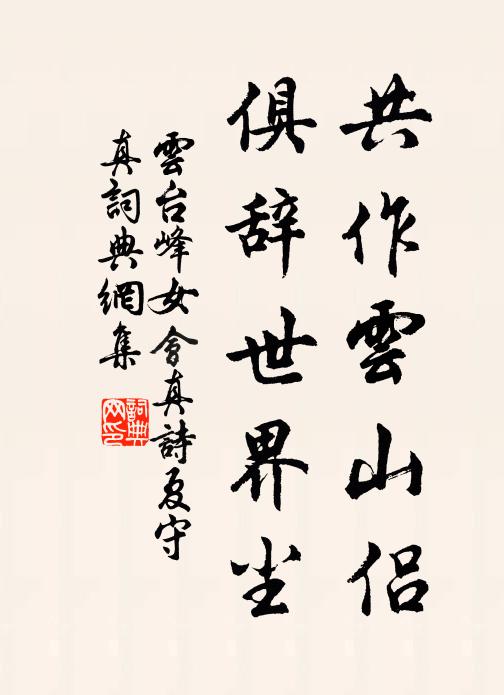 共作雲山侣
俱辞世界尘
雲台峰女會真詩夏守
真詞典網集
詞典网印